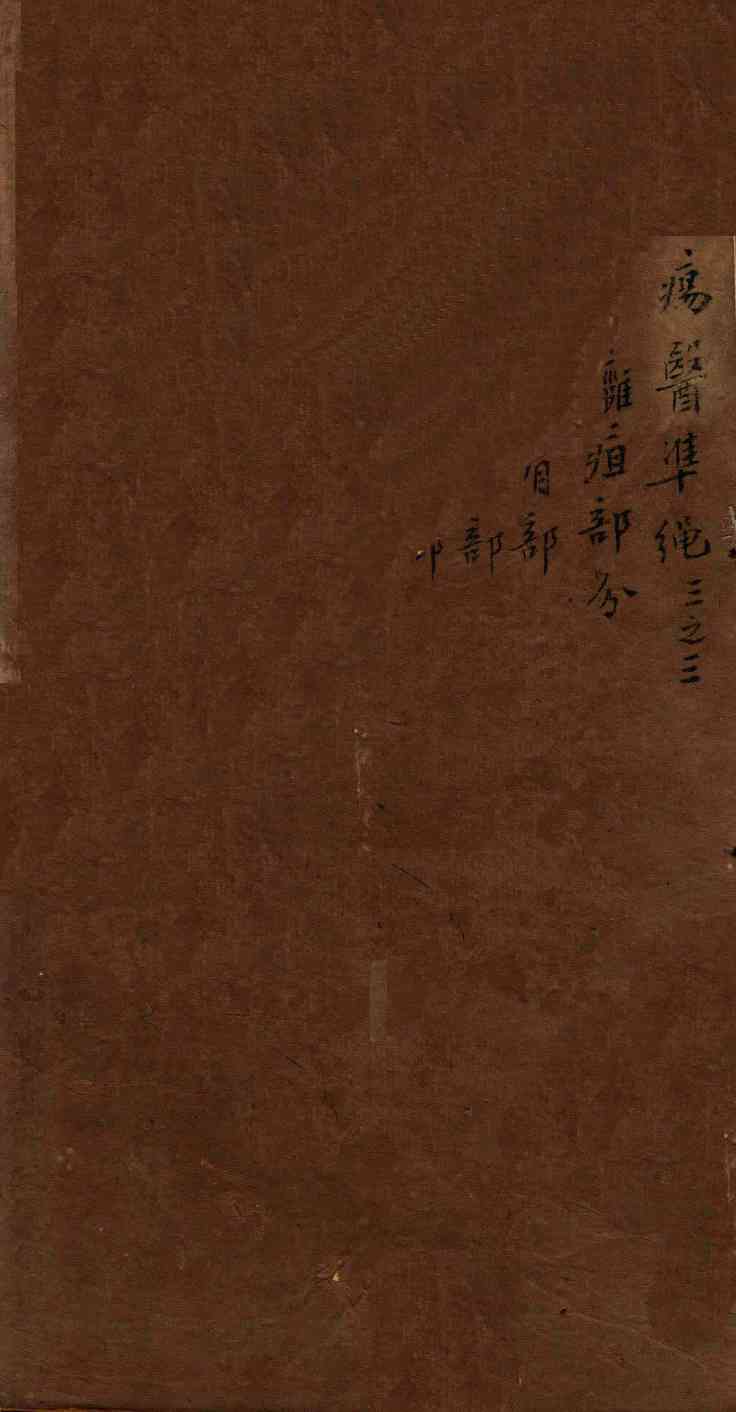 瘍醫準繩三之三
癰疽部分
部
部
卩